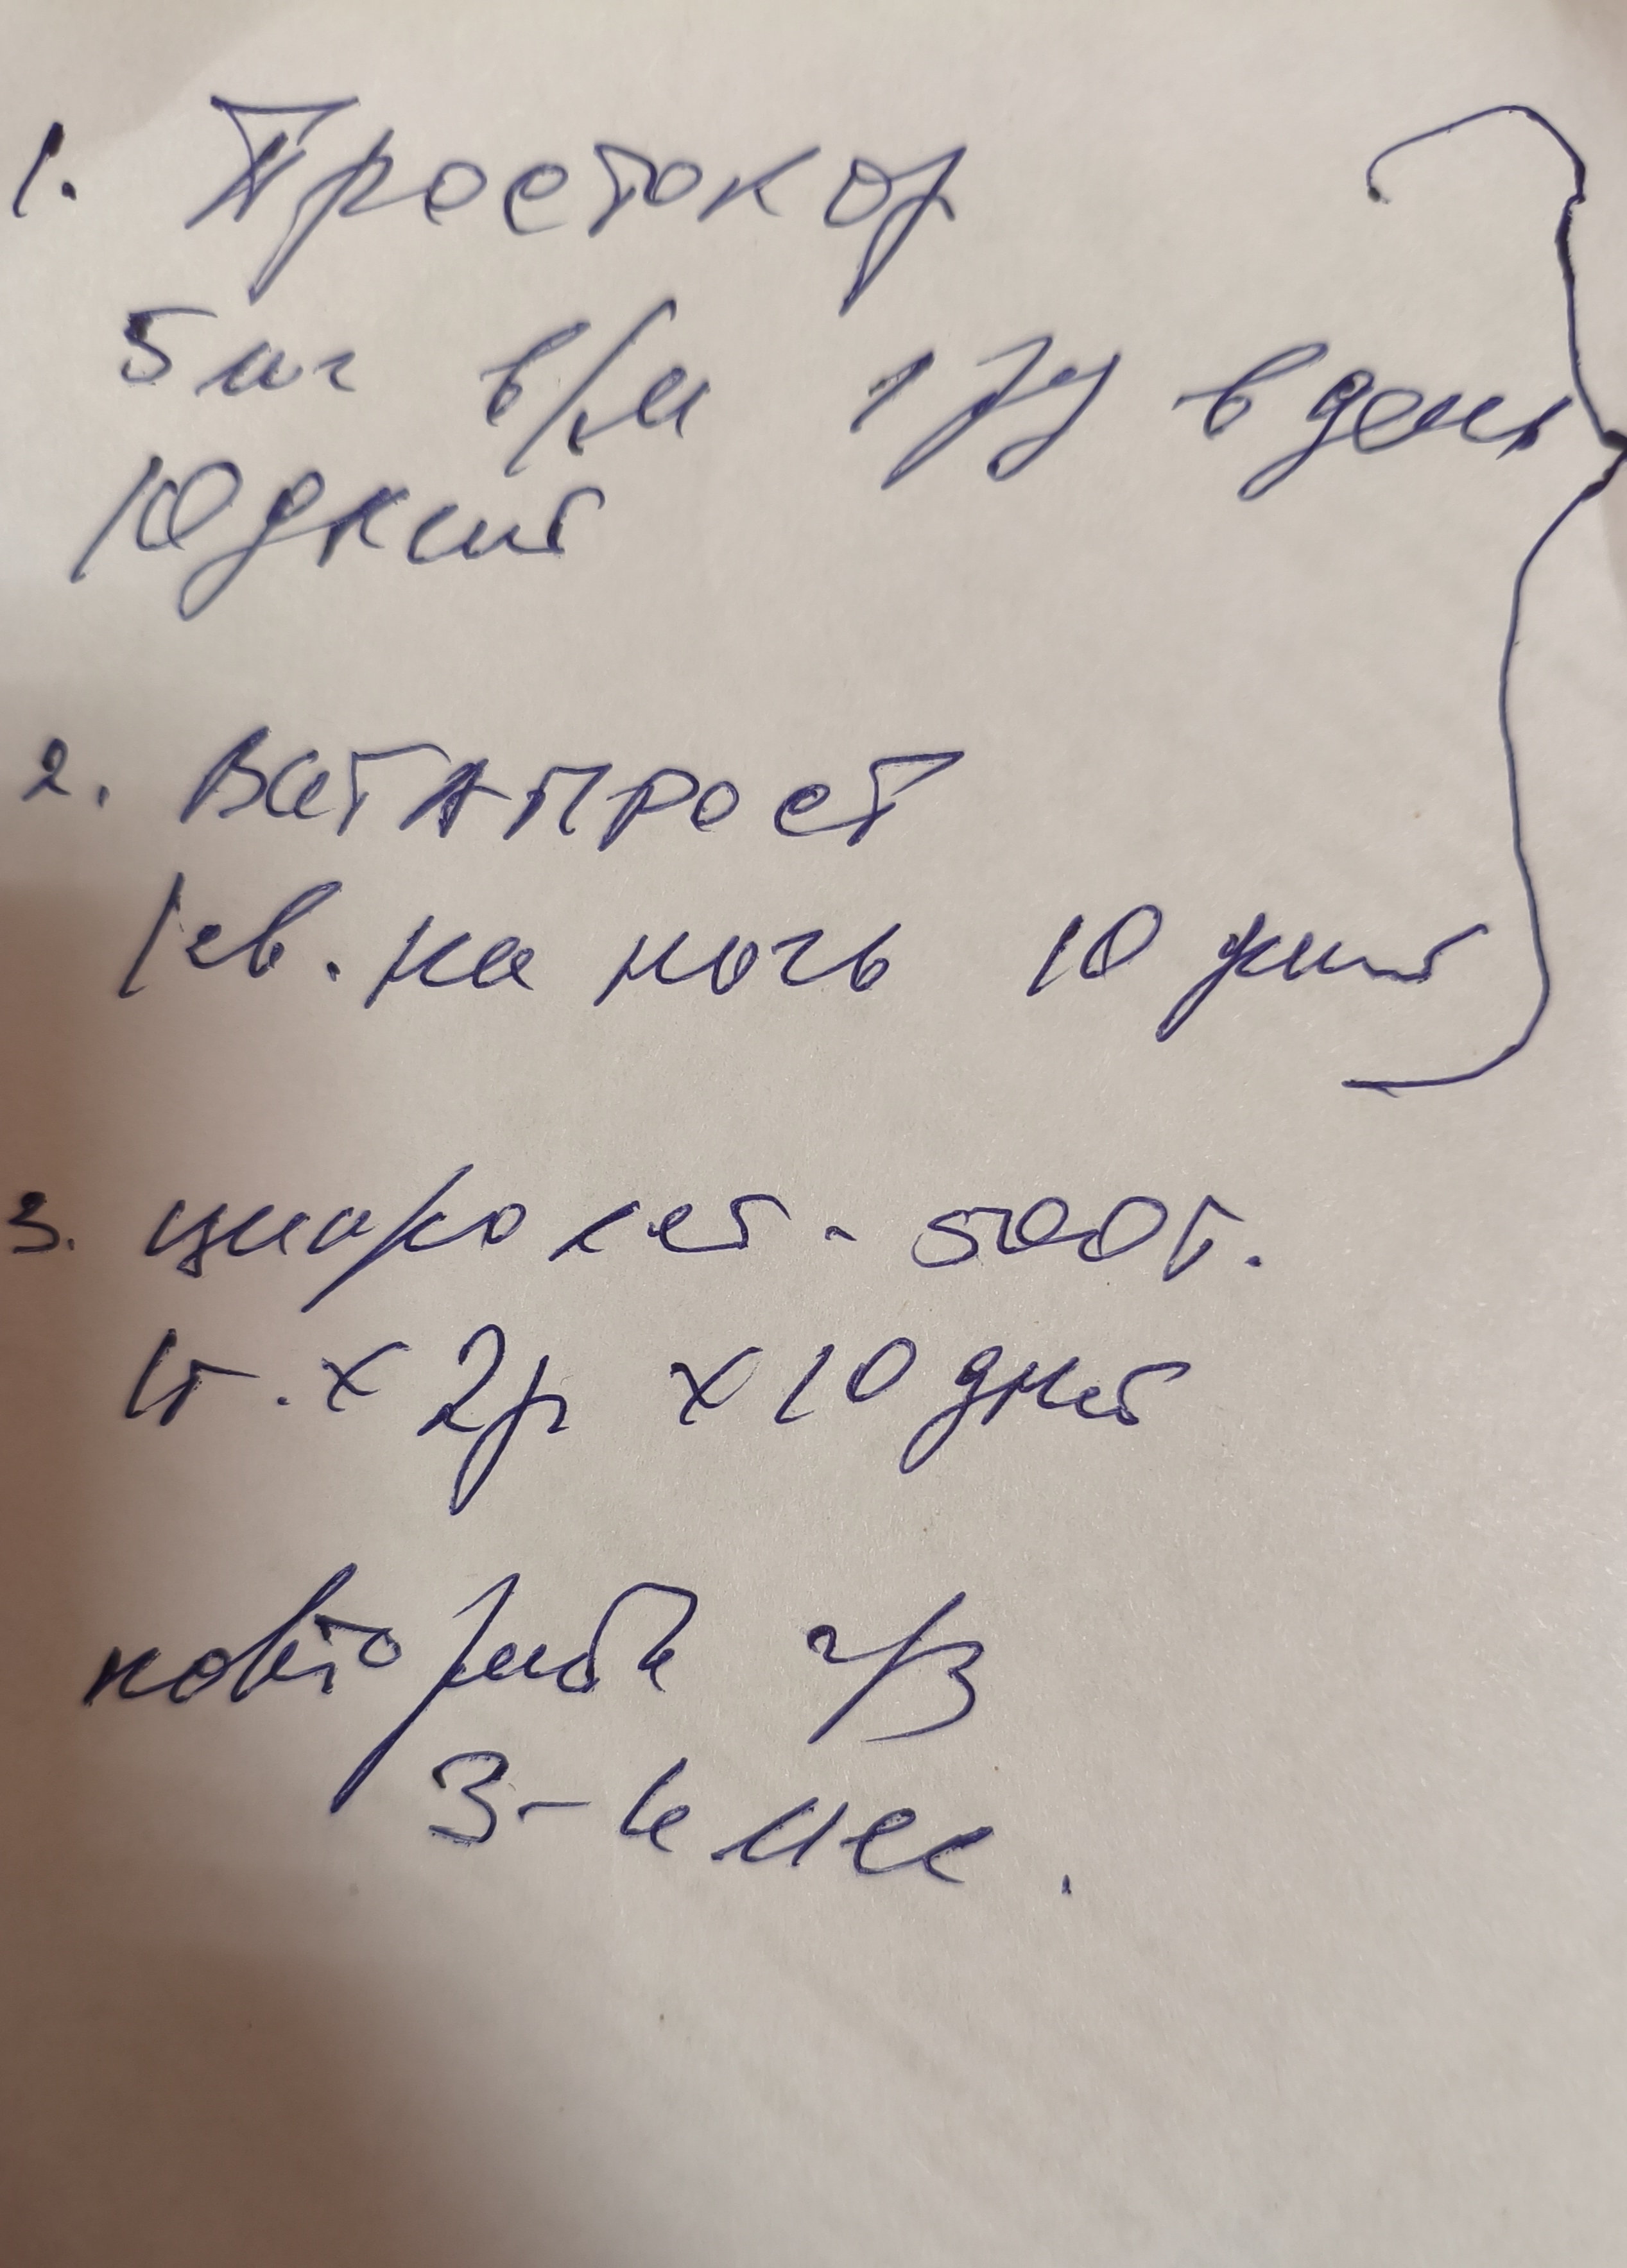 1. Простокор
5 мг в/м 1 р в день
10 дней
2. Витапрост
1 св. на ночь 10 дней
3. Ципролет - 500 т.
1т. х 2р х 10 дней
повторить ч/з
3-4 мес.